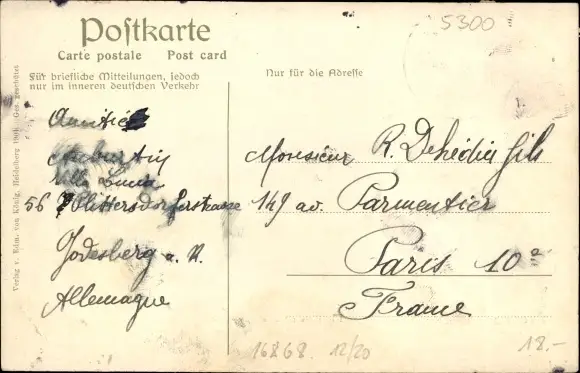 5300
Postkarte
Carte postale Post card
Für briefliche Mitteilungen, jedoch
nur im inneren deutschen Verkehr
Nur für die Adresse
Verlag v. Edm. von König, Heidelberg Ges. geschützt
Amitié
Villa Lucia
56 Plittersdorferstrasse
Godesberg a. R.
Allemagne
Monsieur R. Dehédin fils
149 av. Parmentier
Paris 10e
France
16868 12/20
18.-